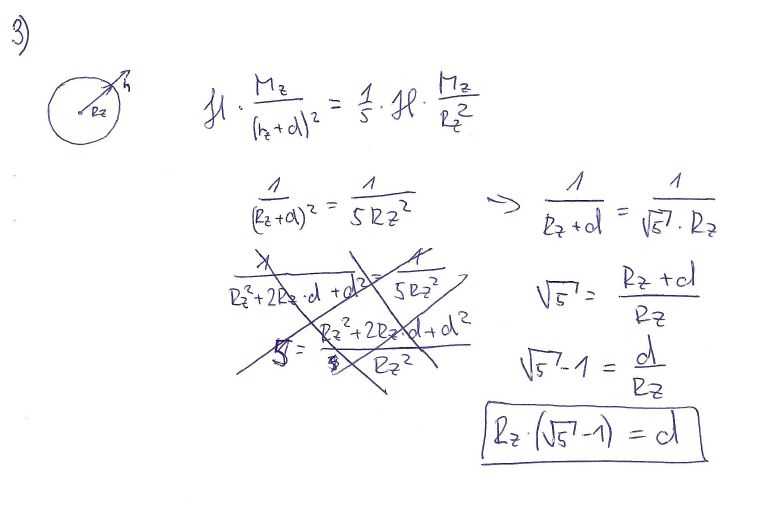 3)
h
Rz
ℋ · Mz/(rz+d)² = 1/5 · ℋ · Mz/Rz²
1/(Rz+d)² = 1/5Rz² → 1/(Rz+d) = 1/(√5 · Rz)
1/(Rz²+2Rz·d+d²) = 1/5Rz²
√5 = (Rz+d)/Rz
5 = (Rz²+2Rz·d+d²)/Rz²
√5-1 = d/Rz
Rz·(√5-1) = d